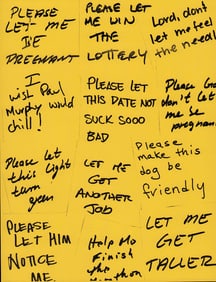 PLEASE
LET ME
BE
PREGNANT
PLEASE LET
ME WIN
THE
LOTTERY
Lord, dont
let me feel
the needl
I
wish Paul
Murphy would
chill!
PLEASE LET
THIS DATE NOT
SUCK SOOO
BAD
Please God
don't let
me be
pregnan
Please let
this light
turn
green
LET ME
GET
ANOTHER
JOB
Please
make this
dog be
friendly
PLEASE
LET HIM
NOTICE
ME.
Help Me
Finish
this
LET ME
GET
TALLER